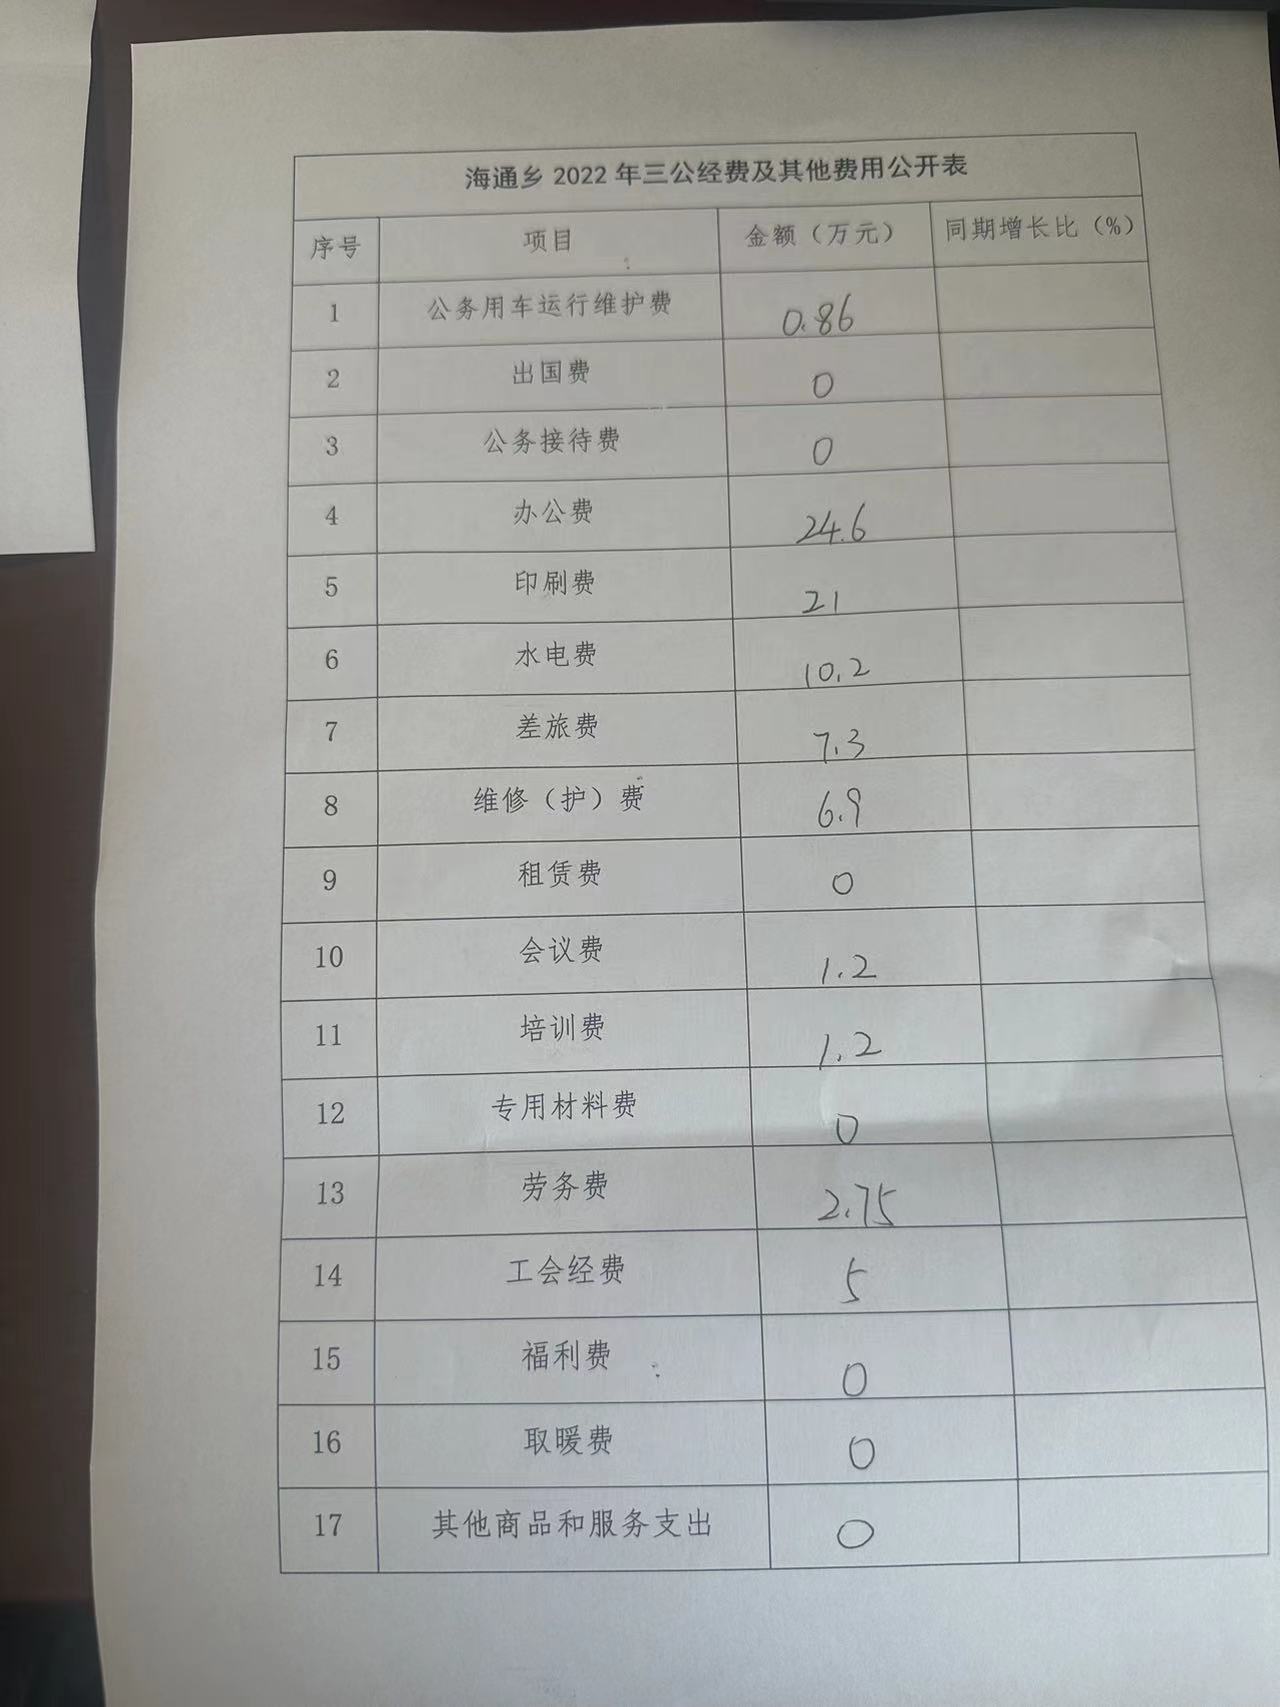 海通乡 2022 年三公经费及其他费用公开表
序号 项目 金额（万元） 同期增长比（%）
1 公务用车运行维护费 0.86
2 出国费 0
3 公务接待费 0
4 办公费 24.6
5 印刷费 21
6 水电费 10.2
7 差旅费 7.3
8 维修（护）费 6.9
9 租赁费 0
10 会议费 1.2
11 培训费 1.2
12 专用材料费 0
13 劳务费 2.75
14 工会经费 5
15 福利费 0
16 取暖费 0
17 其他商品和服务支出 0